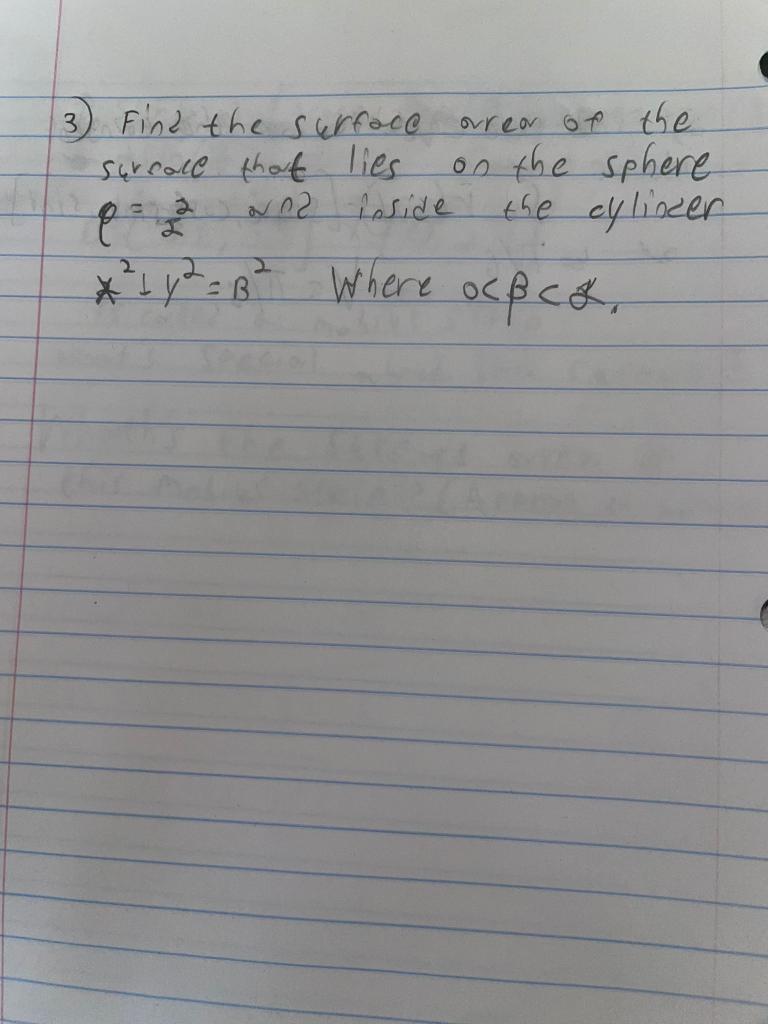 3) Find the surface area of the
surface that lies on the sphere
ρ = and inside the cylinder
x² + y² = β² Where 0<β<α.